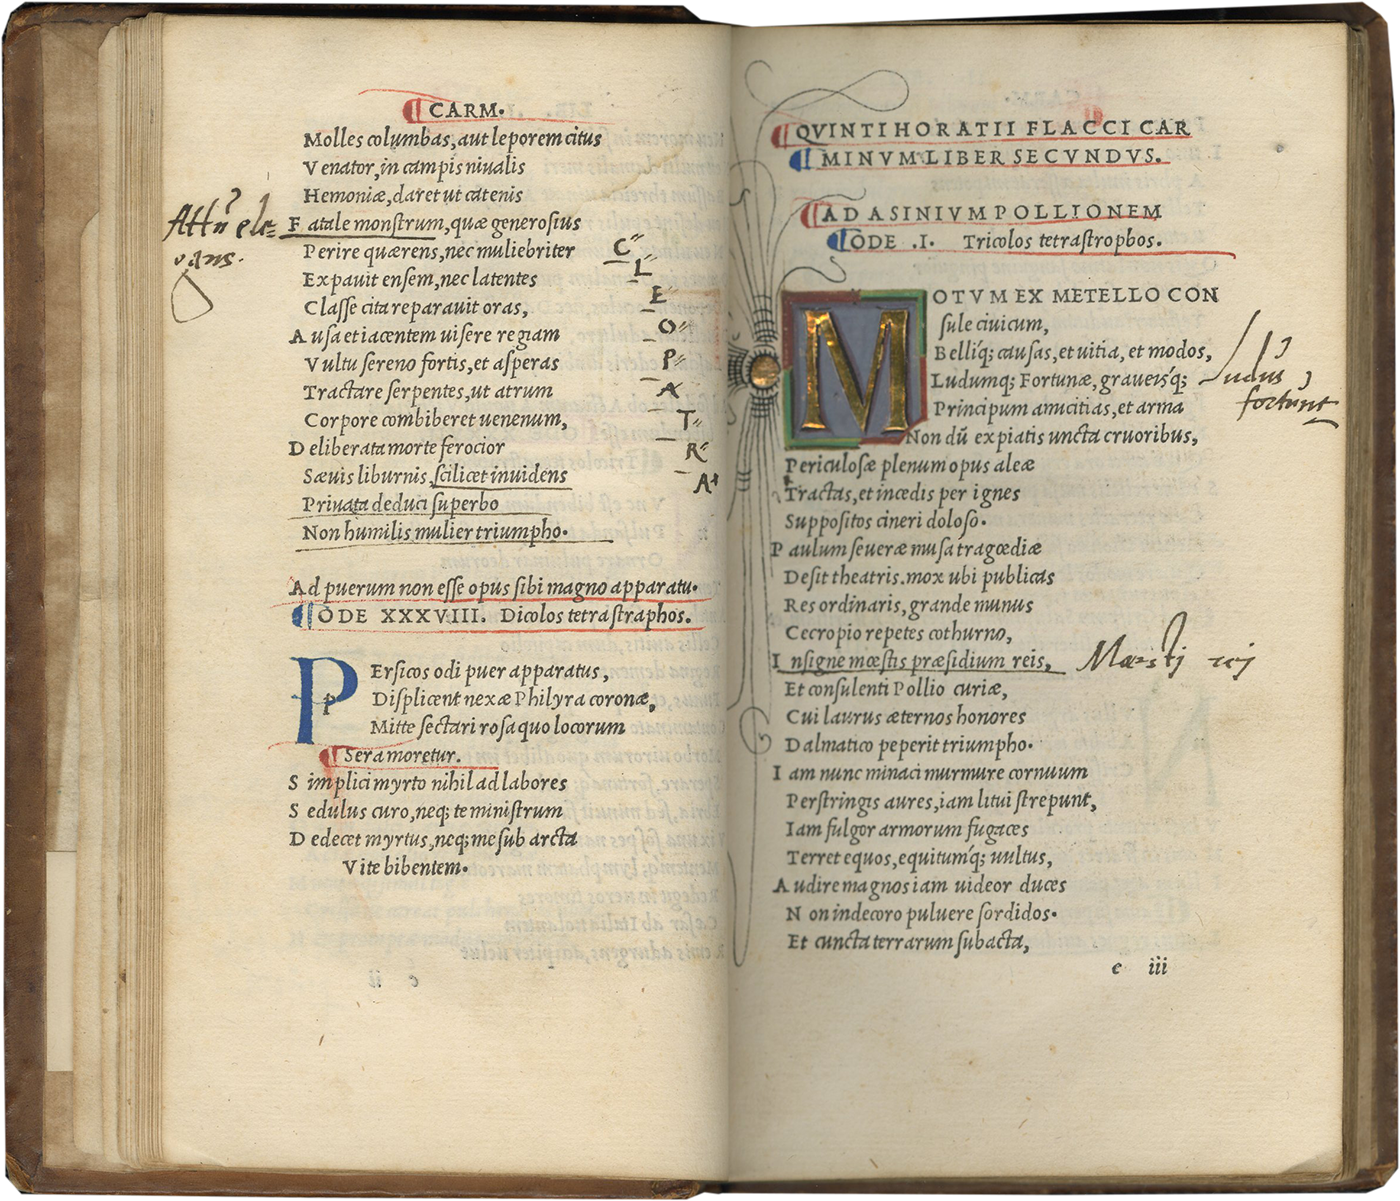 CARM.
Molles columbas, aut leporem citus
Venator, in campis niualis
Hemoniæ, daret ut catenis
Fatale monstrum, quæ generosius
Perire quærens, nec muliebriter
Expauit ensem, nec latentes
Classe cita reparauit oras,
Ausa et iacentem uisere regiam
Vultu sereno fortis, et asperas
Tractare serpentes, ut atrum
Corpore combiberet uenenum,
Deliberata morte ferocior
Sæuis liburnis, scilicet inuidens
Priuata deduci superbo
Non humilis mulier triumpho.
C
L
E
O
P
A
T
R
A
Ad puerum non esse opus sibi magno apparatu.
ODE XXXVIII. Dicolos tetrastraphos.
PErsicos odi puer apparatus,
Displicent nexæ Philyra coronæ,
Mitte sectari rosa quo locorum
Sera moretur.
Simplici myrto nihil ad labores
Sedulus curo, neq; te ministrum
Dedecet myrtus, neq; me sub arcta
Vite bibentem.
QVINTI HORATII FLACCI CAR
MINVM LIBER SECVNDVS.
AD ASINIVM POLLIONEM
ODE .I. Tricolos tetrastrophos.
MOTVM EX METELLO CON
sule ciuicum,
Belliq́; causas, et uitia, et modos,
Ludumq; Fortunæ, graueisq́;
Principum amicitias, et arma
Non dū expiatis uncta cruoribus,
Periculosæ plenum opus aleæ
Tractas, et incedis per ignes
Suppositos cineri doloso.
Paulum seueræ musa tragœdiæ
Desit theatris. mox ubi publicas
Res ordinaris, grande munus
Cecropio repetes cothurno,
Insigne mœstis præsidium reis,
Et consulenti Pollio curiæ,
Cui laurus æternos honores
Dalmatico peperit triumpho.
Iam nunc minaci murmure cornuum
Perstringis aures, iam litui strepunt,
Iam fulgor armorum fugaces
Terret equos, equitumq́; uultus,
Audire magnos iam uideor duces
Non indecoro puluere sordidos.
Et cuncta terrarum subacta,
e iii
Ludus
fortun
Mœsti rei